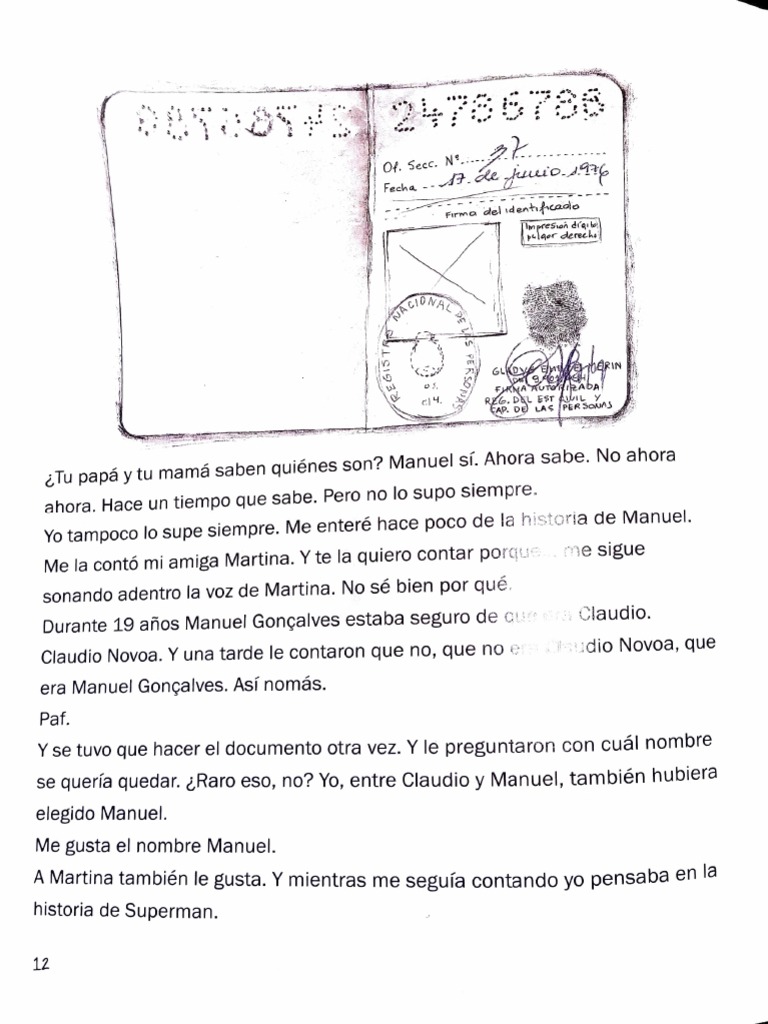 24786788
Of. Secc. Nº. 37
Fecha 17 de junio 1976
Firma del identificado
Impresión digital
pulgar derecho
REGISTRO NACIONAL DE LAS PERSONAS
FIRMA AUTORIZADA
REG. DEL EST CIVIL Y
CAP. DE LAS PERSONAS
¿Tu papá y tu mamá saben quiénes son? Manuel sí. Ahora sabe. No ahora
ahora. Hace un tiempo que sabe. Pero no lo supo siempre.
Yo tampoco lo supe siempre. Me enteré hace poco de la historia de Manuel.
Me la contó mi amiga Martina. Y te la quiero contar porque... me sigue
sonando adentro la voz de Martina. No sé bien por qué.
Durante 19 años Manuel Gonçalves estaba seguro de que era Claudio.
Claudio Novoa. Y una tarde le contaron que no, que no era Claudio Novoa, que
era Manuel Gonçalves. Así nomás.
Paf.
Y se tuvo que hacer el documento otra vez. Y le preguntaron con cuál nombre
se quería quedar. ¿Raro eso, no? Yo, entre Claudio y Manuel, también hubiera
elegido Manuel.
Me gusta el nombre Manuel.
A Martina también le gusta. Y mientras me seguía contando yo pensaba en la
historia de Superman.
12